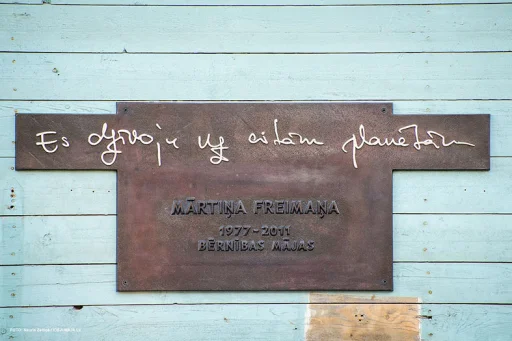 Es dzīvoju uz citām planētām
MĀRTIŅA FREIMAŅA
1977-2011
BĒRNĪBAS MĀJAS